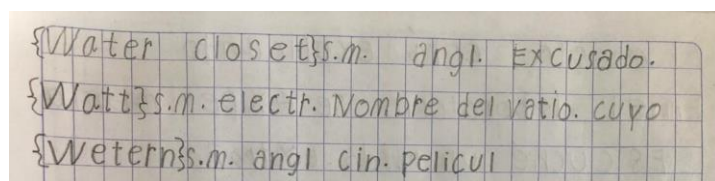 {Water closet}s.m. angl. Excusado.
{Watt}s.m. electr. Nombre del vatio. cuyo
{Wetern}s.m. angl cin. pelicul